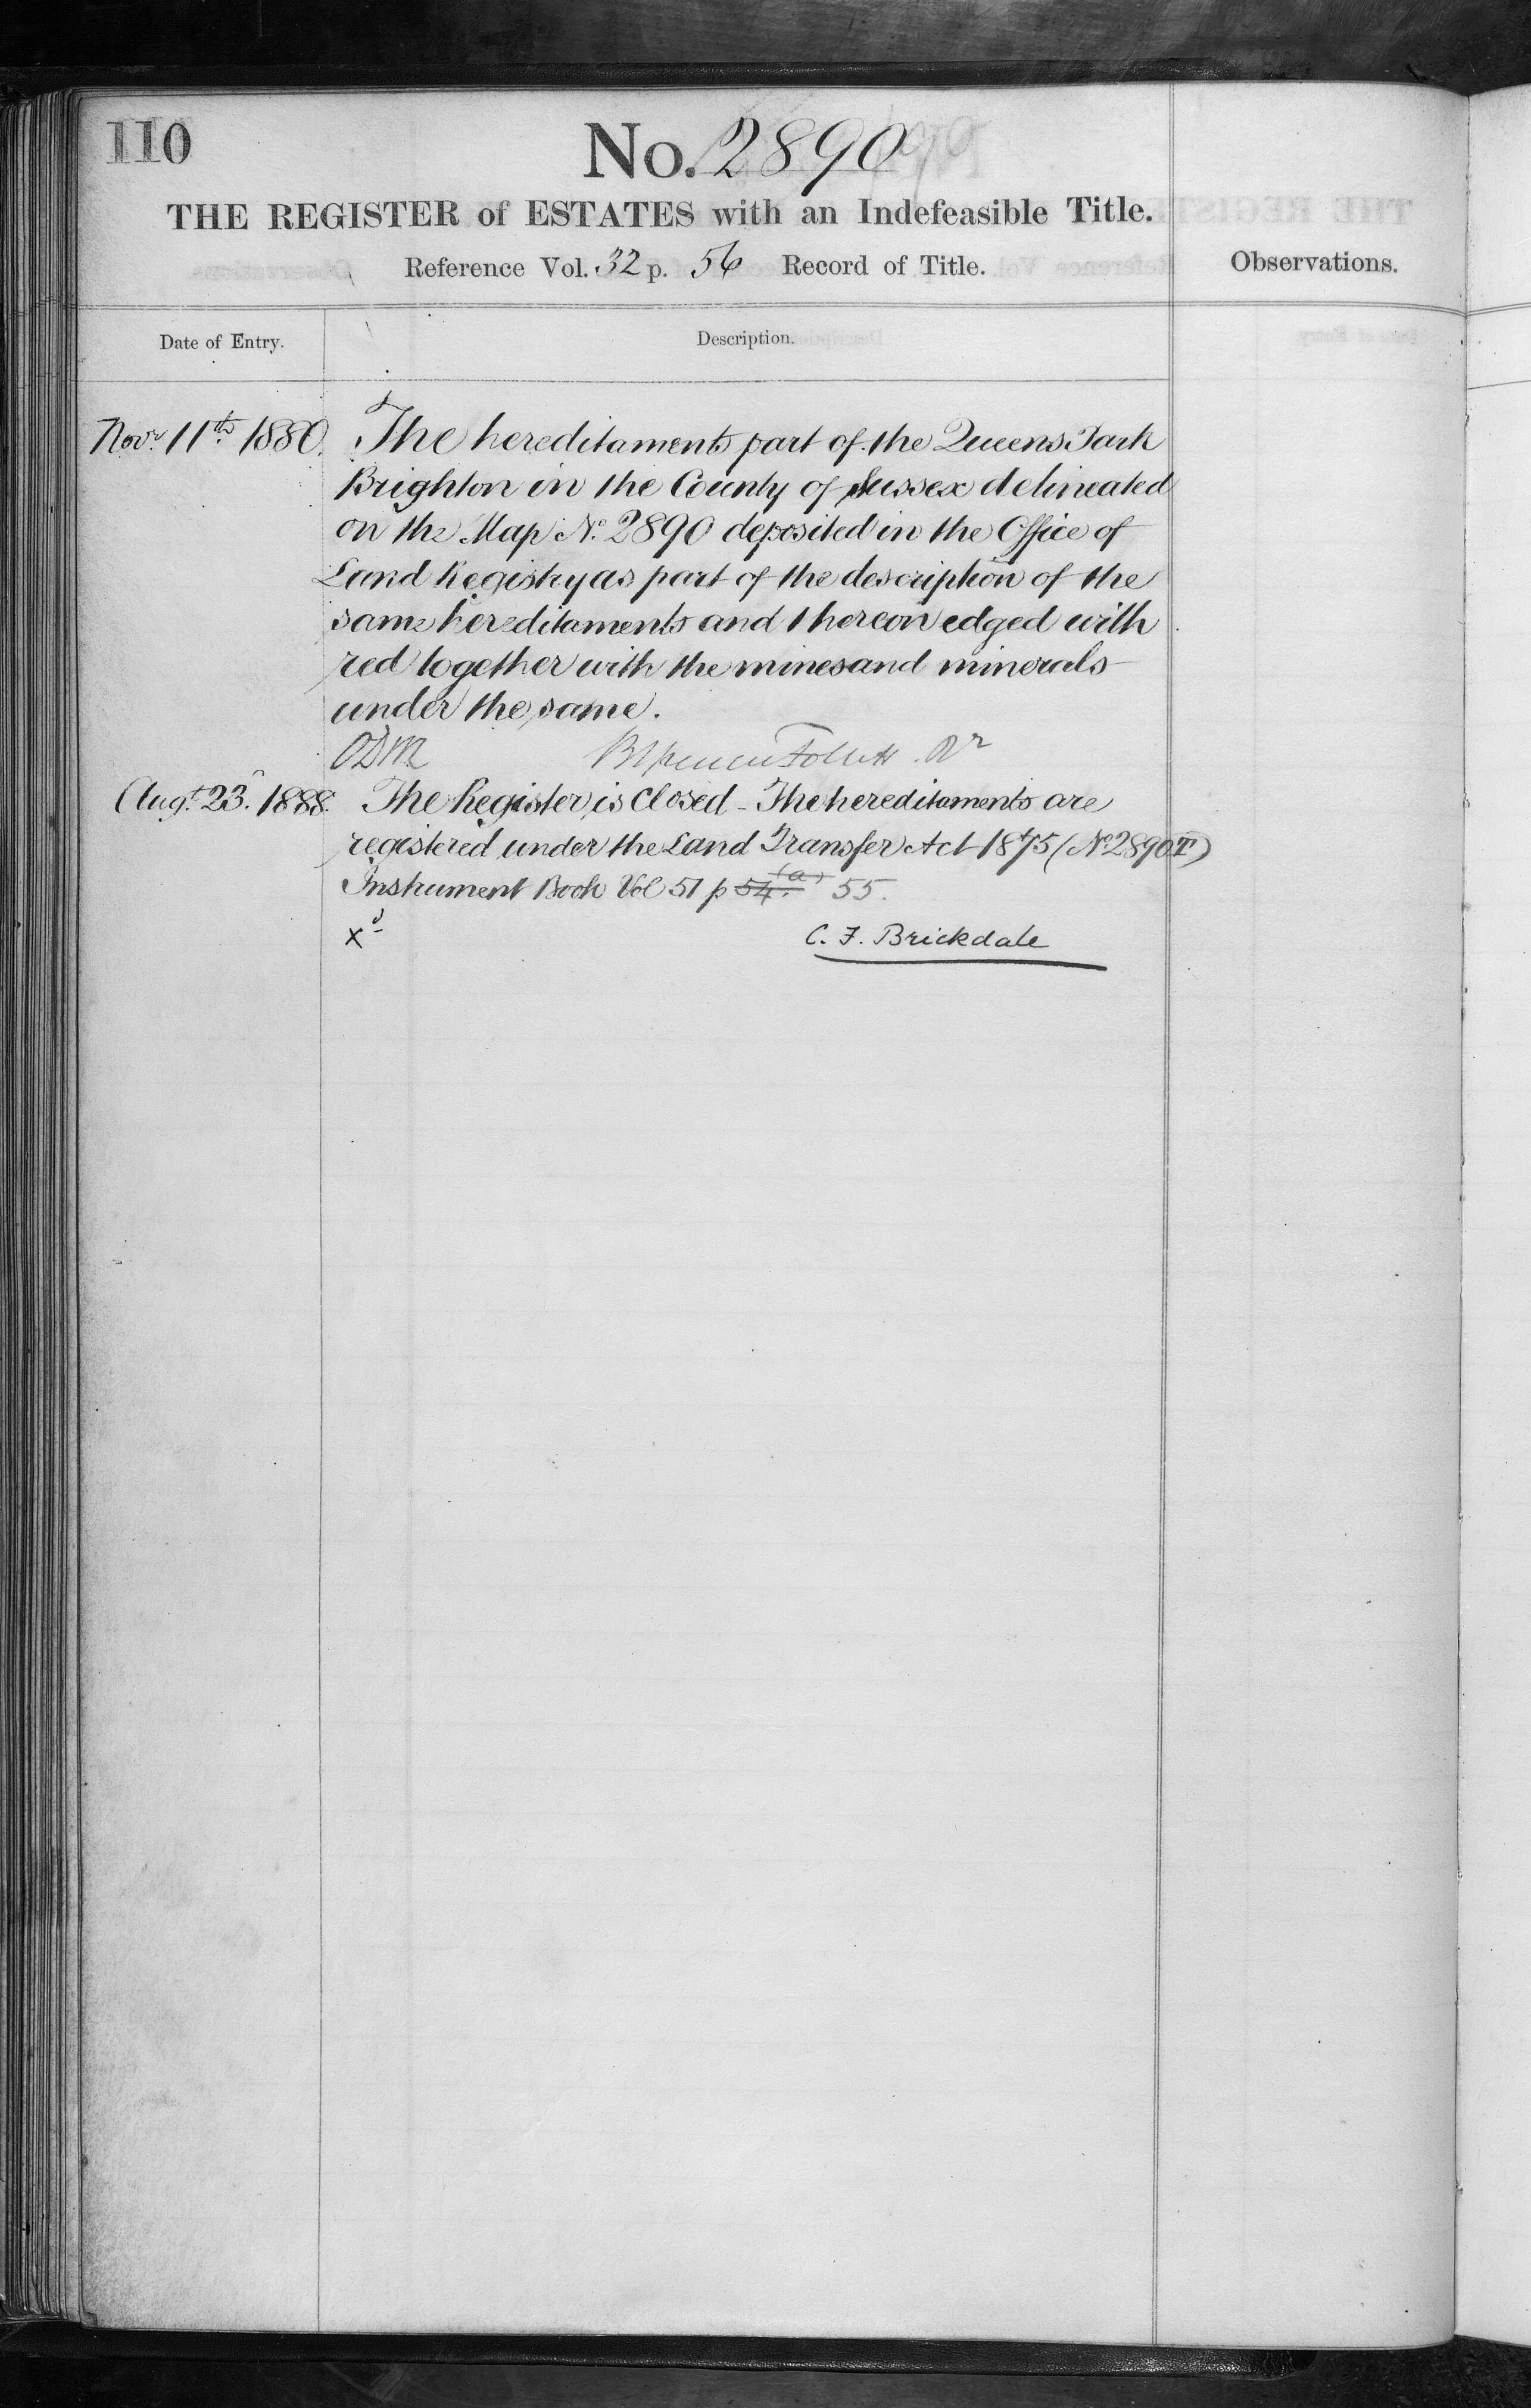 110
No. 2890
THE REGISTER of ESTATES with an Indefeasible Title.
Reference Vol. 32 p. 56 Record of Title.
Observations.
Date of Entry.
Description.
Novr. 11th. 1880. The hereditaments part of the Queens Park
Brighton in the County of Sussex delineated
on the Map No. 2890 deposited in the Office of
Land Registry as part of the description of the
same hereditaments and thereon edged with
red together with the mines and minerals
under the same.
Follett Rr
Augt. 23. 1888. The Register is Closed - The hereditaments are
registered under the Land Transfer Act 1875 (No 2890T)
Instrument Book Vol 51 p 54. (a) 55.
Xd
C. F. Brickdale